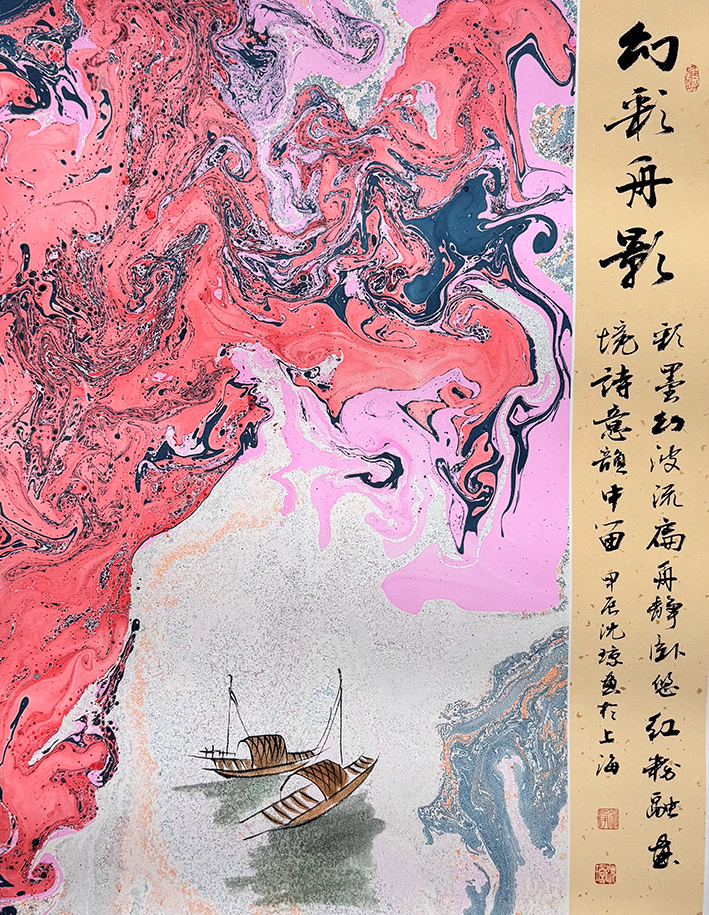 幻彩舟影
彩墨幻波流扁舟静卧悠红粉融画
境詩意韻中留 甲辰沈琼画於上海